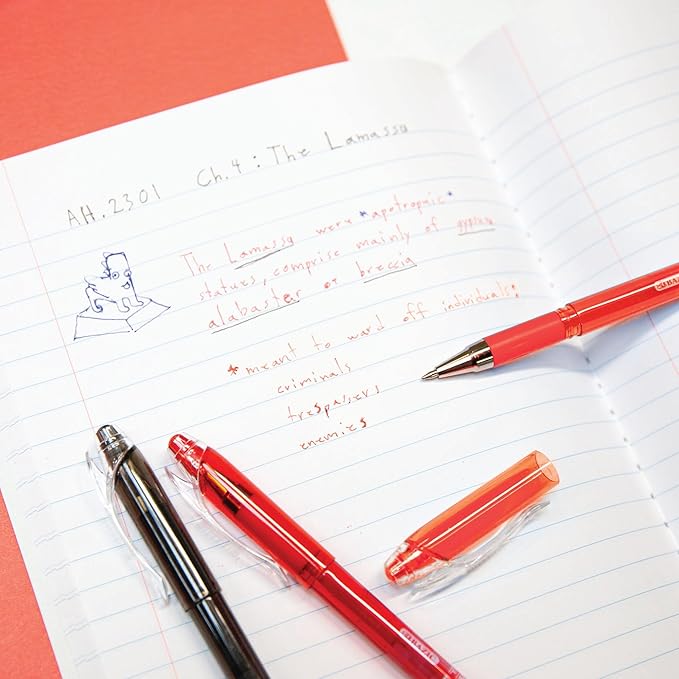 AH.2301 Ch.4: The Lamassu
The Lamassu were *apotropaic*
statues, comprise mainly of gypsum
alabaster or breccia
*meant to ward off individuals:
criminals
trespassers
enemies